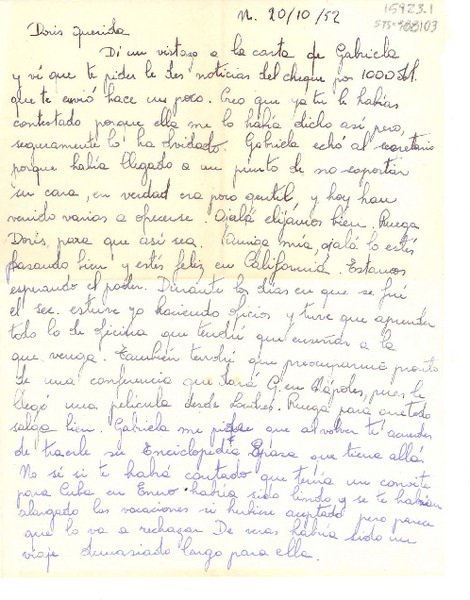 N. 20/10/52
15923.1
Doris querida
Di un vistazo a la carta de Gabriela
y vi que te pide le des noticias del cheque por 1000
que te envió hace un poco. Creo que ya tu le habías
contestado porque ella me lo había dicho así pero,
seguramente lo ha olvidado. Gabriela echó al secretario
porque había llegado a un punto de no soportar
su cara, en verdad era poco gentil y hoy han
venido varias a ofrecerse. Ojalá elijamos bien. Ruega
Doris, para que así sea. Amiga mia, ojalá lo estés
pasando bien y estés feliz en California. Estamos
esperando el poder. Durante los días en que se fué
el sec. estuve yo haciendo oficios y tuve que aprender
todo lo de oficina que tendré que enseñar a la
que venga. También tendré que preocuparme pronto
de una conferencia que dará G. en Nápoles, pues le
llegó una película desde Londres. Ruega para que todo
salga bien. Gabriela me pide que al volver te acuerdes
de traerle su Enciclopedia Espasa que tiene allá.
No sé si te había contado que tenía un convite
para Cuba en Enero había sido lindo y se te habían
alargado las vacaciones si hubiera aceptado pero parece
que lo va a rechazar De mas había sido un
viaje demasiado largo para ella.